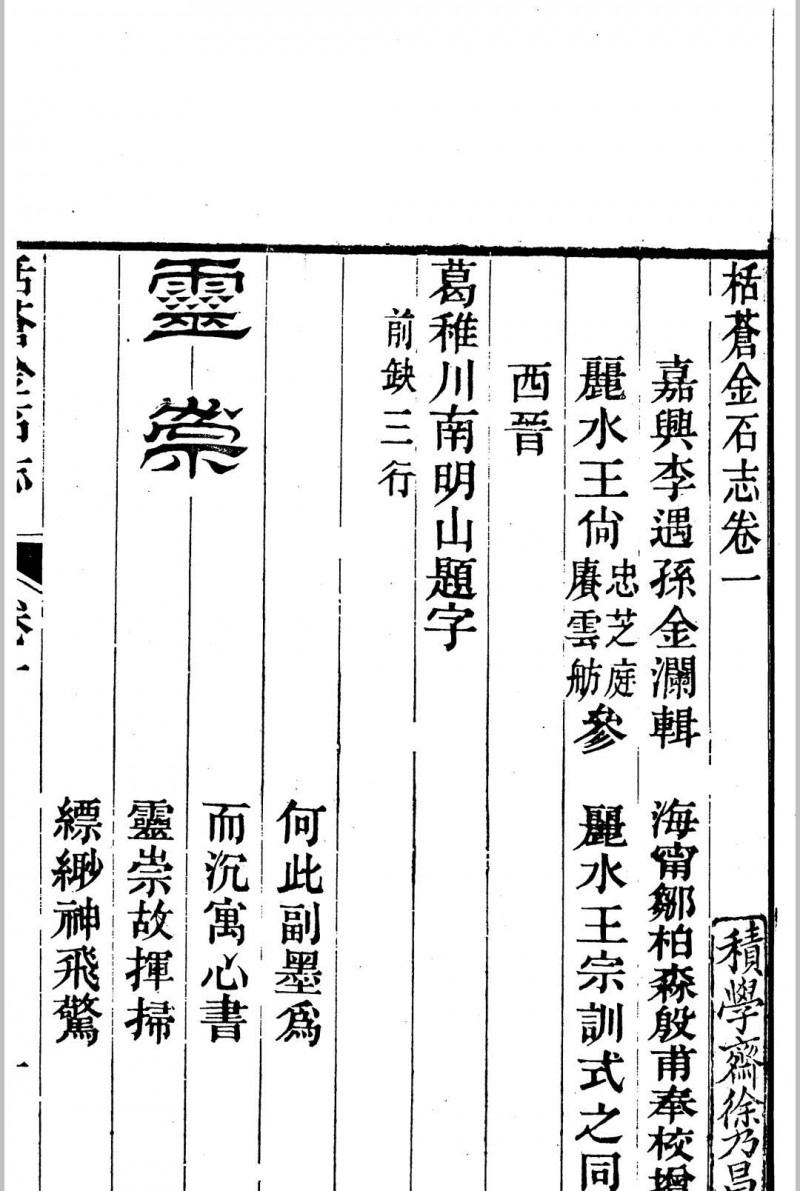 栝蒼金石志卷一
積學齋徐乃昌
嘉興李遇孫金瀾輯 海甯鄒柏森殷甫奉校增
麗水王尙忠芝庭賡雲舫參 麗水王宗訓式之同
西晉
葛稚川南明山題字
前缺三行
何此副墨爲
而沉寓心書
靈崇
靈崇故揮掃
縹緲神飛驚
栝蒼金石志 卷一 一